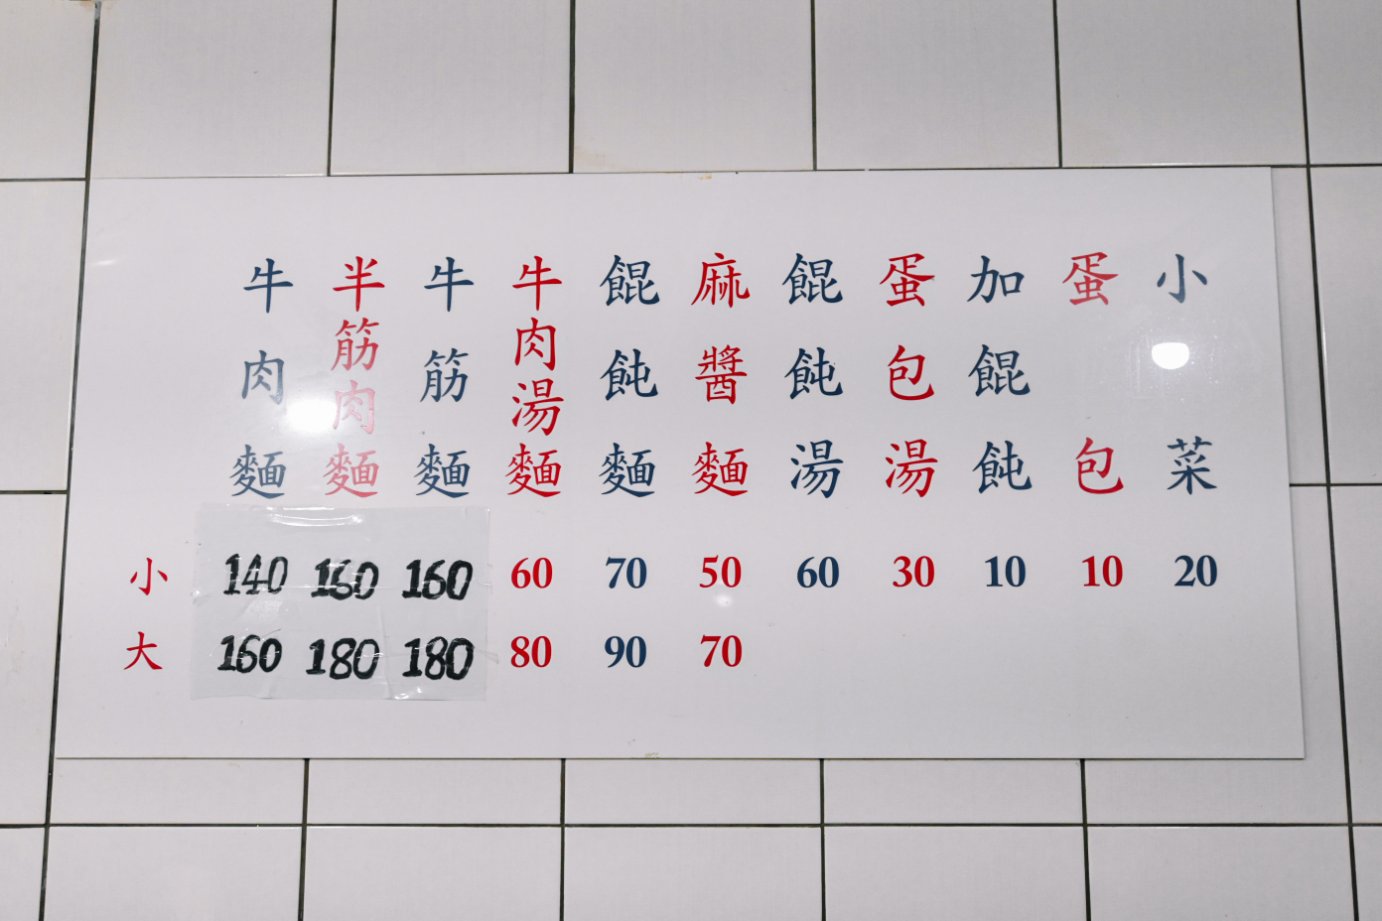 牛肉麵
半筋肉麵
牛筋麵
牛肉湯麵
餛飩麵
麻醬麵
餛飩湯
蛋包湯
加餛飩
蛋包
小菜
小 140 160 160 60 70 50 60 30 10 10 20
大 160 180 180 80 90 70